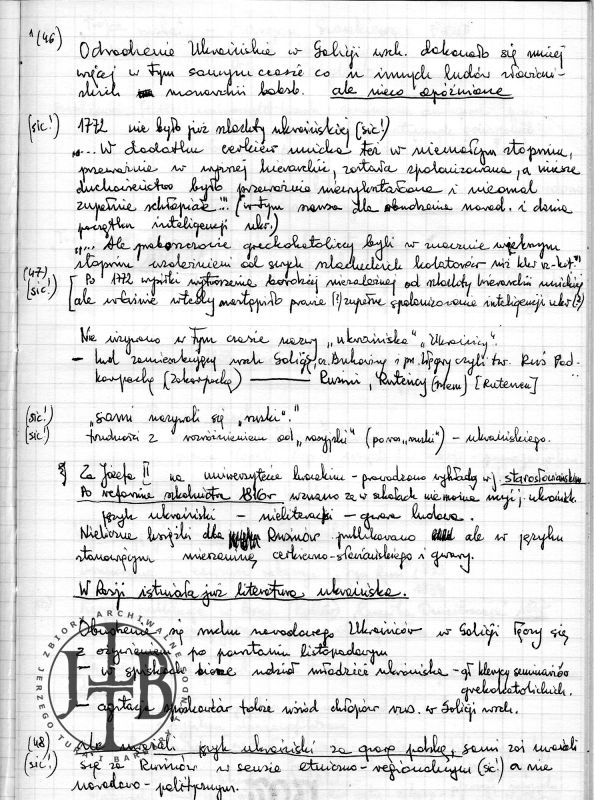 1 (46)
Odrodzenie Ukraińskie w Galicji wsch. dokonało się mniej
więcej w tym samym czasie co u innych ludów słowiań-
skich monarchii habsb. ale nieco opóźnione
(sic!) 1772 nie było już szlachty ukraińskiej (sic!)
"... W dodatku cerkiew unicka też w niemałym stopniu,
przeważnie w wyższej hierarchii, została spolonizowana, a niższe
duchowieństwo było przeważnie niewykształcone i nieomal
zupełnie schłopiałe..." (w tym szansa dla obudzenia narod. i dania
początku inteligencji ukr.)
"... Ale proboszczowie greckokatoliccy byli w znacznie większym
stopniu uzależnieni od swych szlacheckich kolatorów niż kler rz-kat."
(47)
(sic!) [Po 1772 wysiłki wytworzenia szerokiej niezależnej od szlachty hierarchii unickiej
ale właśnie wtedy nastąpiło prawie (!) zupełne spolonizowanie inteligencji ukr (?)
Nie używano w tym czasie nazwy "ukraińska" "Ukraińcy".
– lud zamieszkujący wsch Galicję, cz. Bukowiny i pn. Węgry czyli tzw. Ruś Pod-
karpacką (Zakarpacką) ——— Rusini, Rutency (niem) [Rutenen]
(sic!) "sami nazywali się "ruski"."
(sic!) trudności z rozróżnieniem od "rosyjski" (po ros "russki") – ukraińskiego.
Za Józefa II na uniwersytecie lwowskim – prowadzono wykłady w j. starosłowiańskim
Po reformie szkolnictwa 1816r uznano że w szkołach nie można użyć j. ukraińsk.
język ukraiński – nieliteracki – gwara ludowa.
Nieliczne książki dla Rusinów publikowano ale w języku
stanowiącym mieszaninę cerkiewno-słowiańskiego i gwary.
W Rosji istniała już literatura ukraińska.
Obudzenie się ruchu narodowego Ukraińców w Galicji łączy się
z ożywieniem po powstaniu listopadowym
– w spiskach bierze udział młodzież ukraińska – gł klerycy seminariów
grekokatolickich.
– agitacja spiskowców także wśród chłopów ukr. w Galicji wsch.
(48) uważali język ukraiński za gwarę polską, sami zaś uważali
(sic!) się za Rusinów w sensie etniczno-regionalnym (sic!) a nie
narodowo-politycznym.
ZBIORY ARCHIWALNE RODZINY
JERZEGO TUMANA I BARBARY
JTB